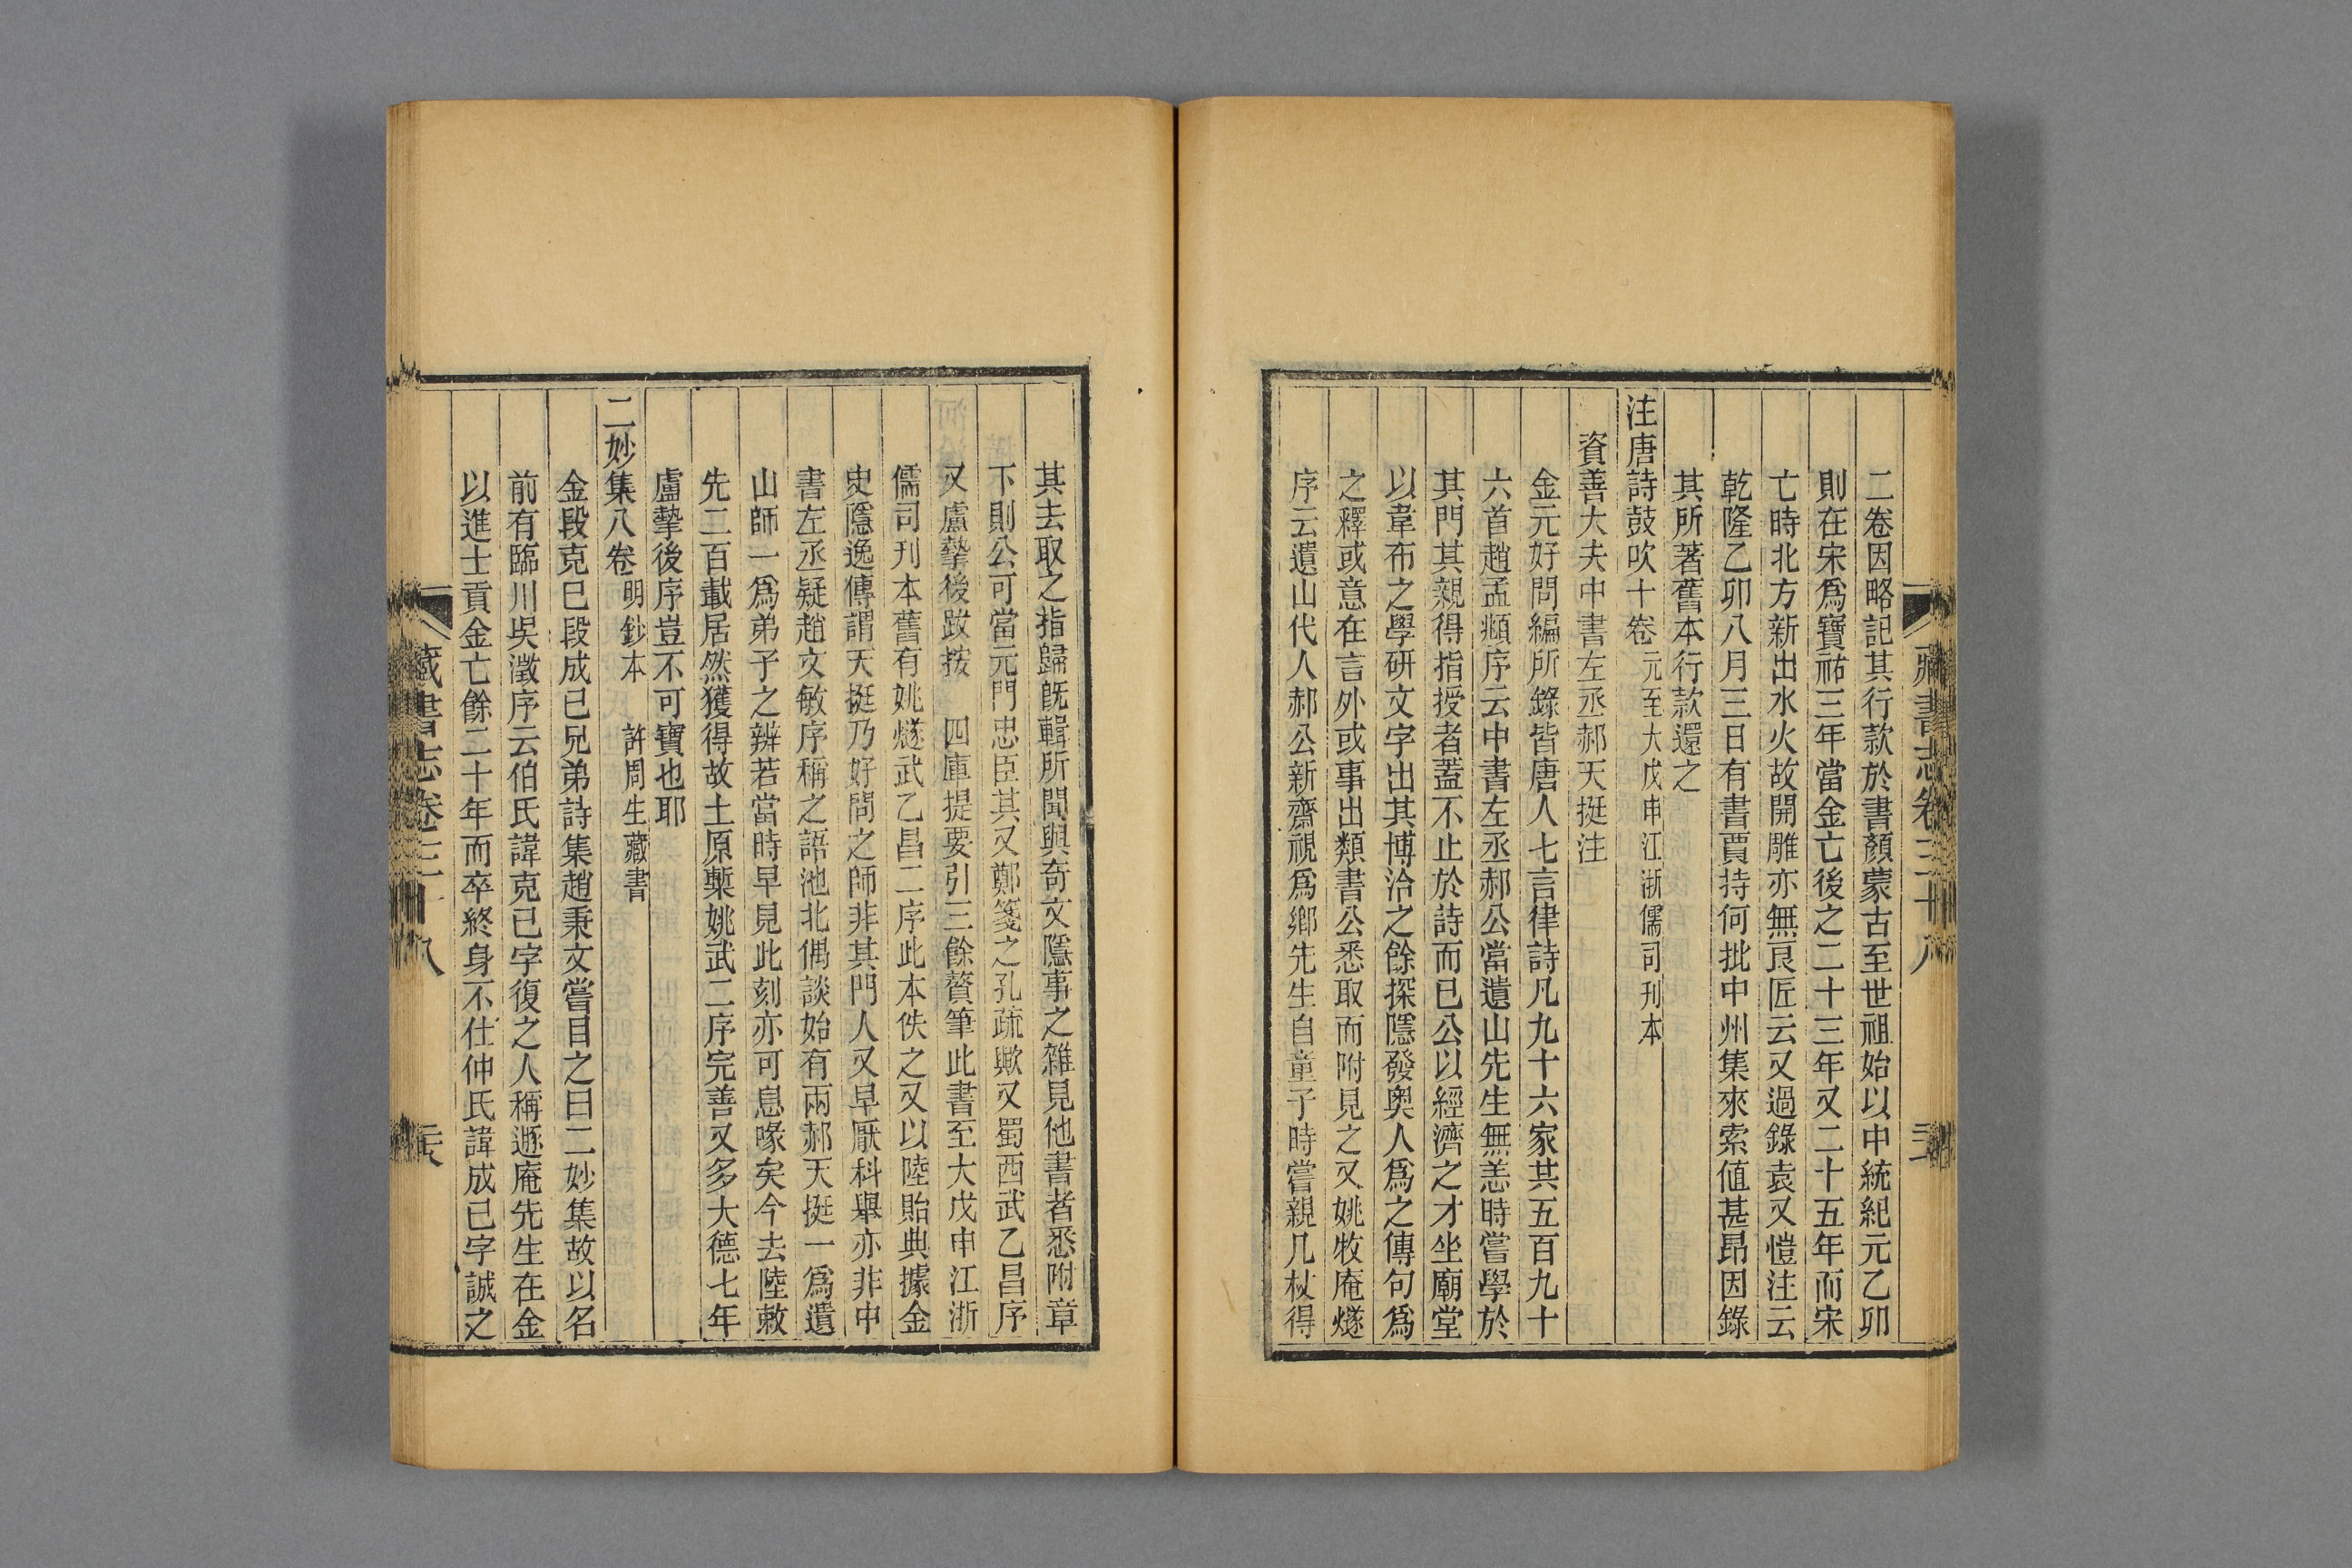 二卷因略記其行款於書顏蒙古至世祖始以中統紀元乙卯
則在宋爲寶祐三年當金亡後之二十三年又二十五年而宋
亡時北方新出水火故開雕亦無良匠云又過錄袁又愷注云
乾隆乙卯八月三日有書賈持何批中州集來索値甚昂因錄
其所著舊本行款還之
注唐詩鼓吹十卷 元至大戊申江浙儒司刊本
資善大夫中書左丞郝天挺注
金元好問編所錄皆唐人七言律詩凡九十六家共五百九十
六首趙孟頫序云中書左丞郝公當遺山先生無恙時嘗學於
其門其親得指授者蓋不止於詩而已公以經濟之才坐廟堂
以韋布之學研文字出其博洽之餘探隱發奧人爲之傳句爲
之釋或意在言外或事出類書公悉取而附見之又姚牧庵燧
序云遺山代人郝公新齋視爲鄉先生自童子時嘗親几杖得
其去取之指歸旣輯所聞與奇文隱事之雜見他書者悉附章
下則公可當元門忠臣其又鄭箋之孔疏歟又蜀西武乙昌序
又盧摯後跋按 四庫提要引三餘贅筆此書至大戊申江浙
儒司刊本舊有姚燧武乙昌二序此本佚之又以陸貽典據金
史隱逸傳謂天挺乃好問之師非其門人又早厭科舉亦非中
書左丞疑趙文敏序稱之語池北偶談始有兩郝天挺一爲遺
山師一爲弟子之辨若當時早見此刻亦可息喙矣今去陸敕
先二百載居然獲得故土原槧姚武二序完善又多大德七年
盧摯後序豈不可寶也耶
二妙集八卷 明鈔本 許周生藏書
金段克巳段成巳兄弟詩集趙秉文嘗目之曰二妙集故以名
前有臨川吳澂序云伯氏諱克巳字復之人稱遯庵先生在金
以進士貢金亡餘二十年而卒終身不仕仲氏諱成巳字誠之
藏書志卷三十八